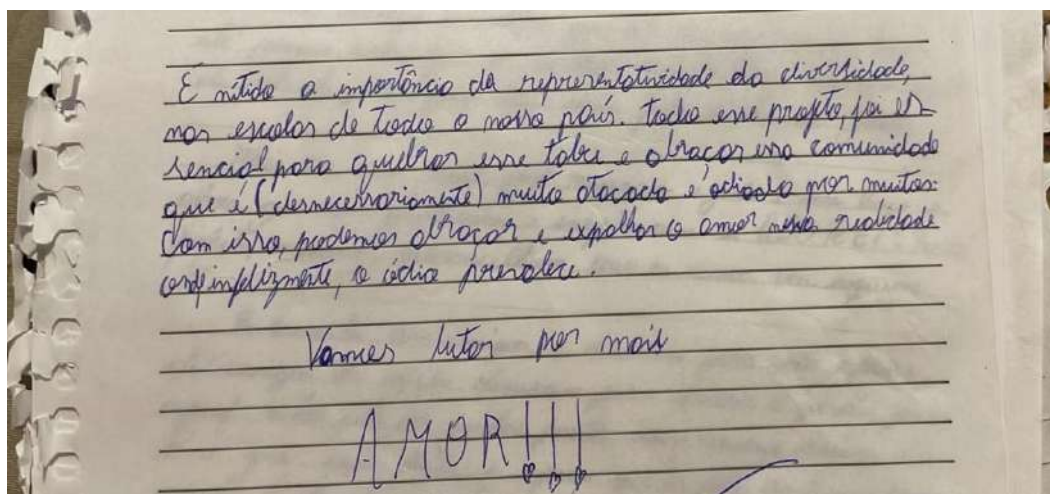 É nítido a importância da representatividade da diversidade,
nas escolas de todo o nosso país. Todo esse projeto, foi es-
sencial para quebrar esse tabu e abraçar essa comunidade
que é (desnecessariamente) muito atacada e odiada por muitos.
Com isso, podemos abraçar e espalhar o amor nessa realidade
onde infelizmente, o ódio prevalece.
Vamos lutar por mais
AMOR!!!